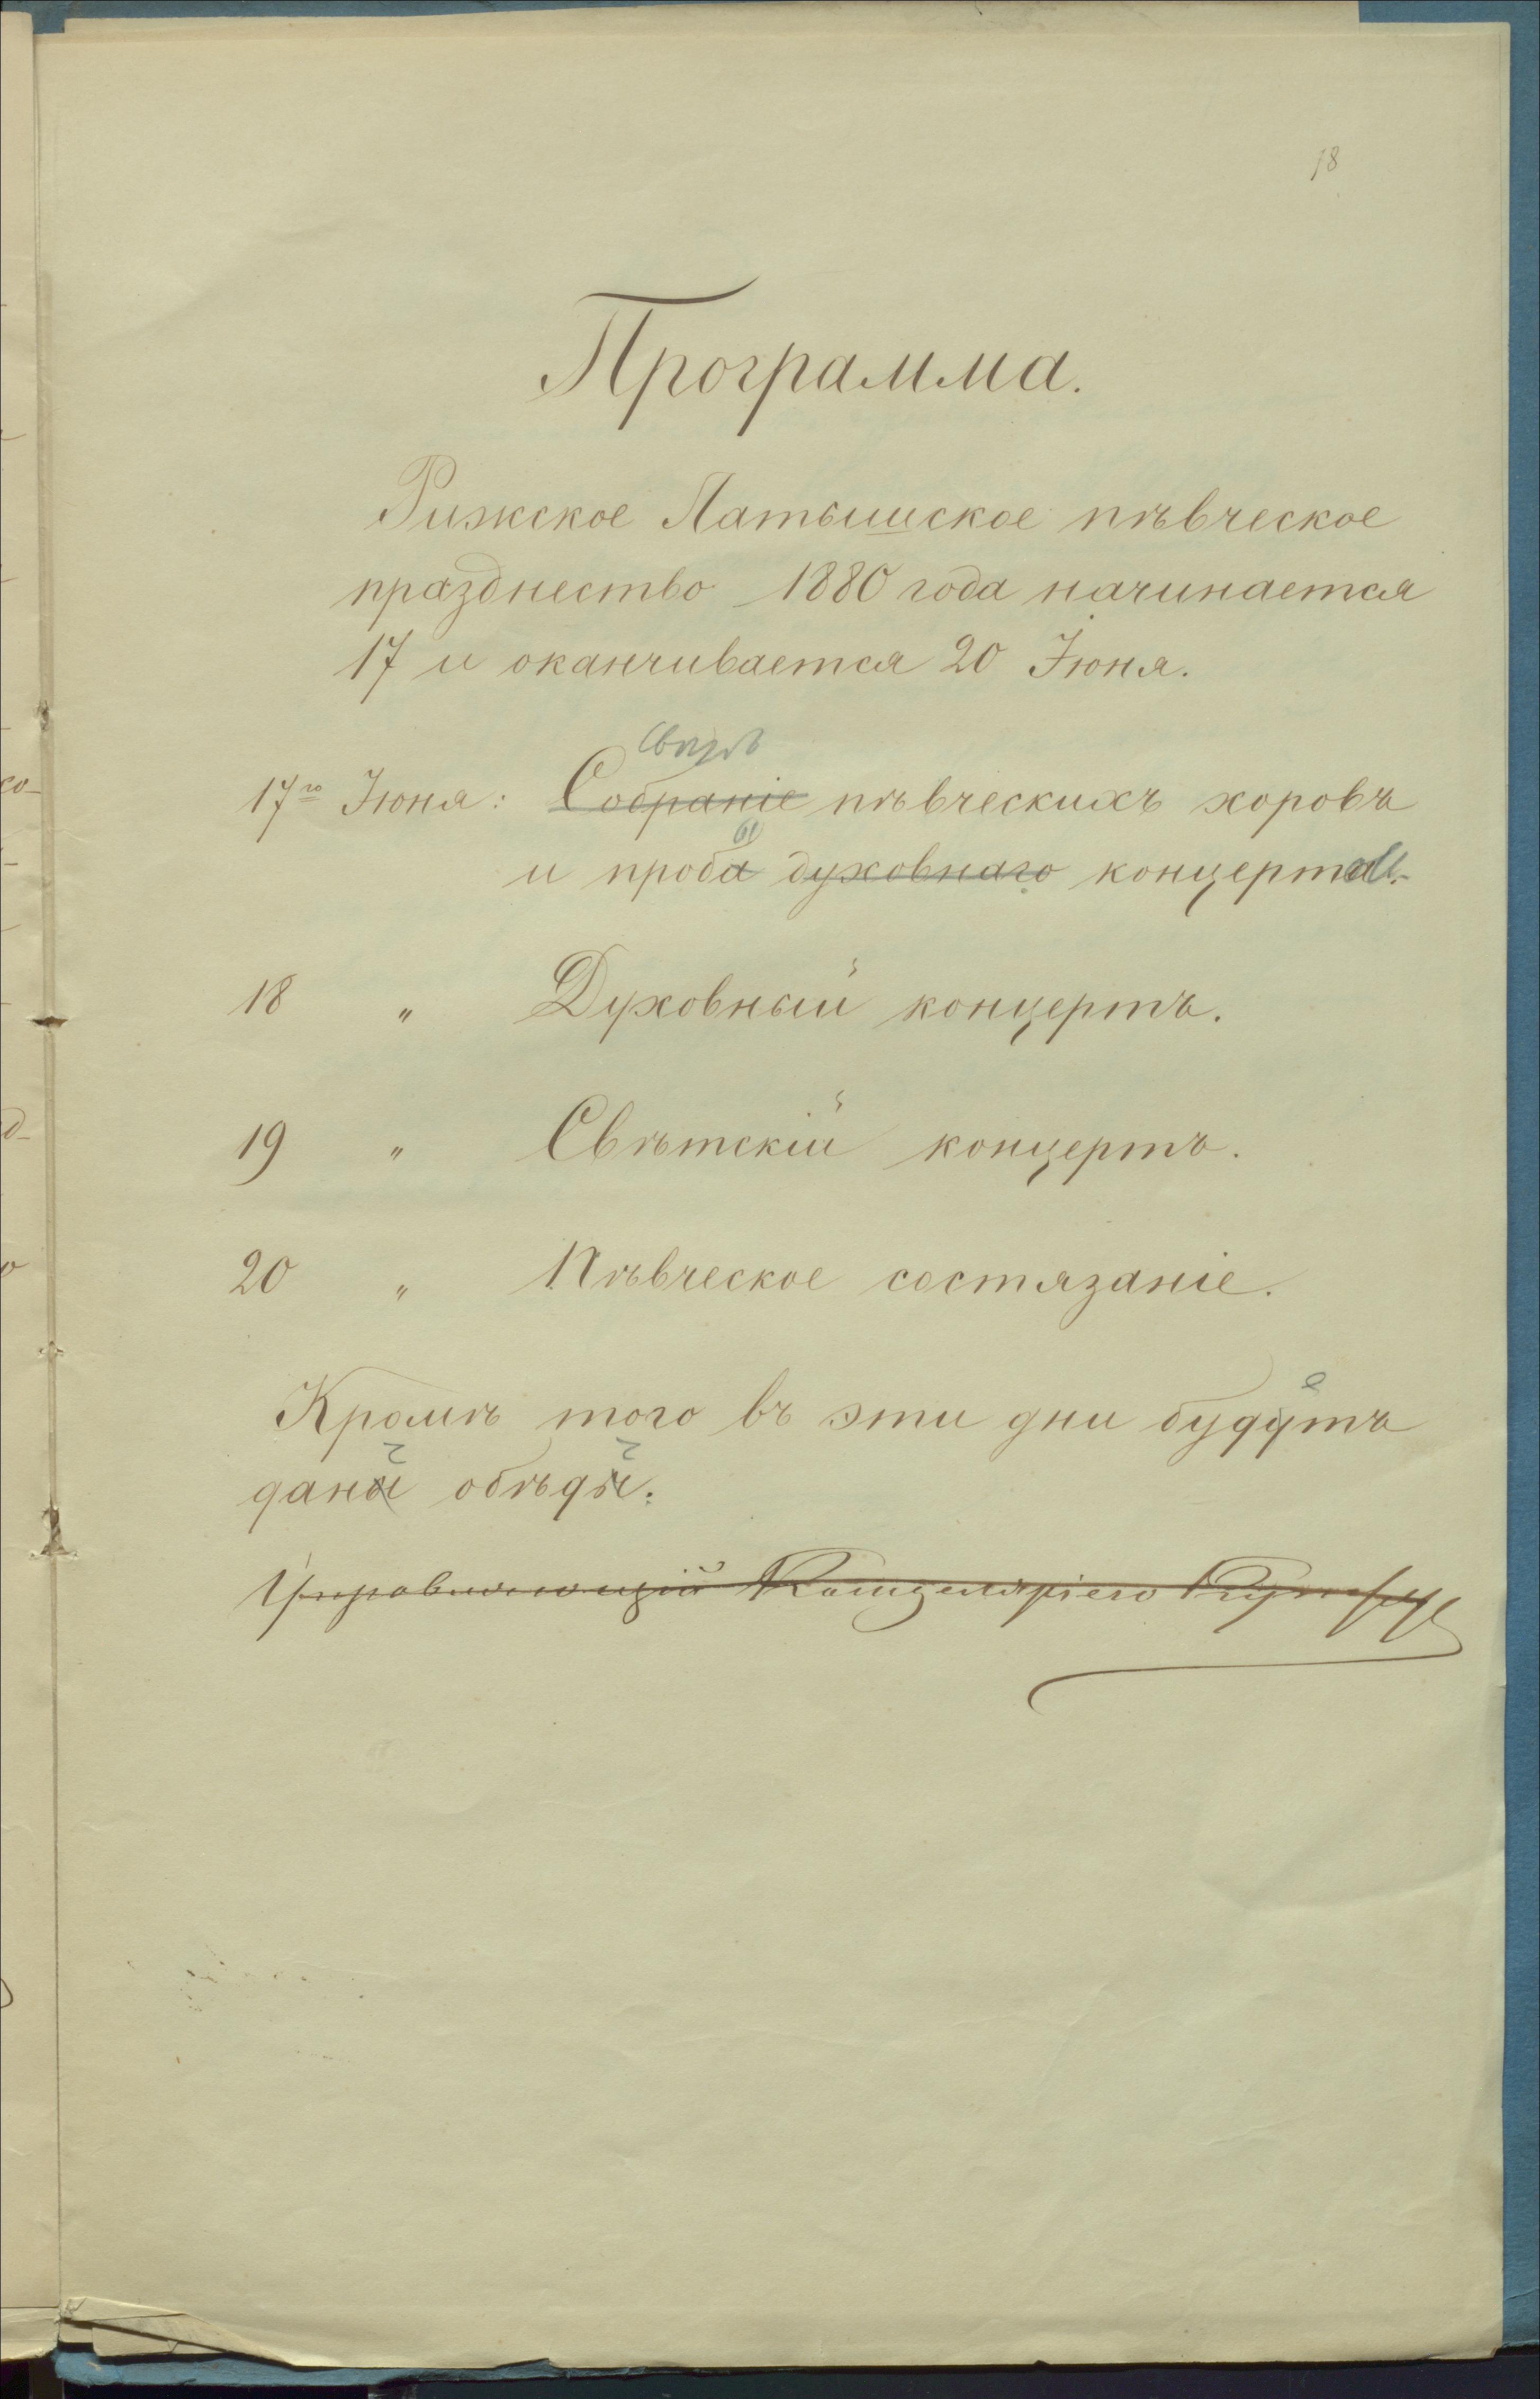 18
Программа.
Рижское Латышское пѣвческое
празднество 1880 года начинается
17 и оканчивается 20 Іюня.
Съѣздъ
17го Іюня: Собраніе пѣвческихъ хоровъ
и проба духовнаго концерта.
18 " Духовный концертъ.
19 " Свѣтскій концертъ.
20 " Пѣвческое состязаніе.
Кромѣ того въ эти дни будутъ
даны обѣды.
Управляющій Канцеляріею